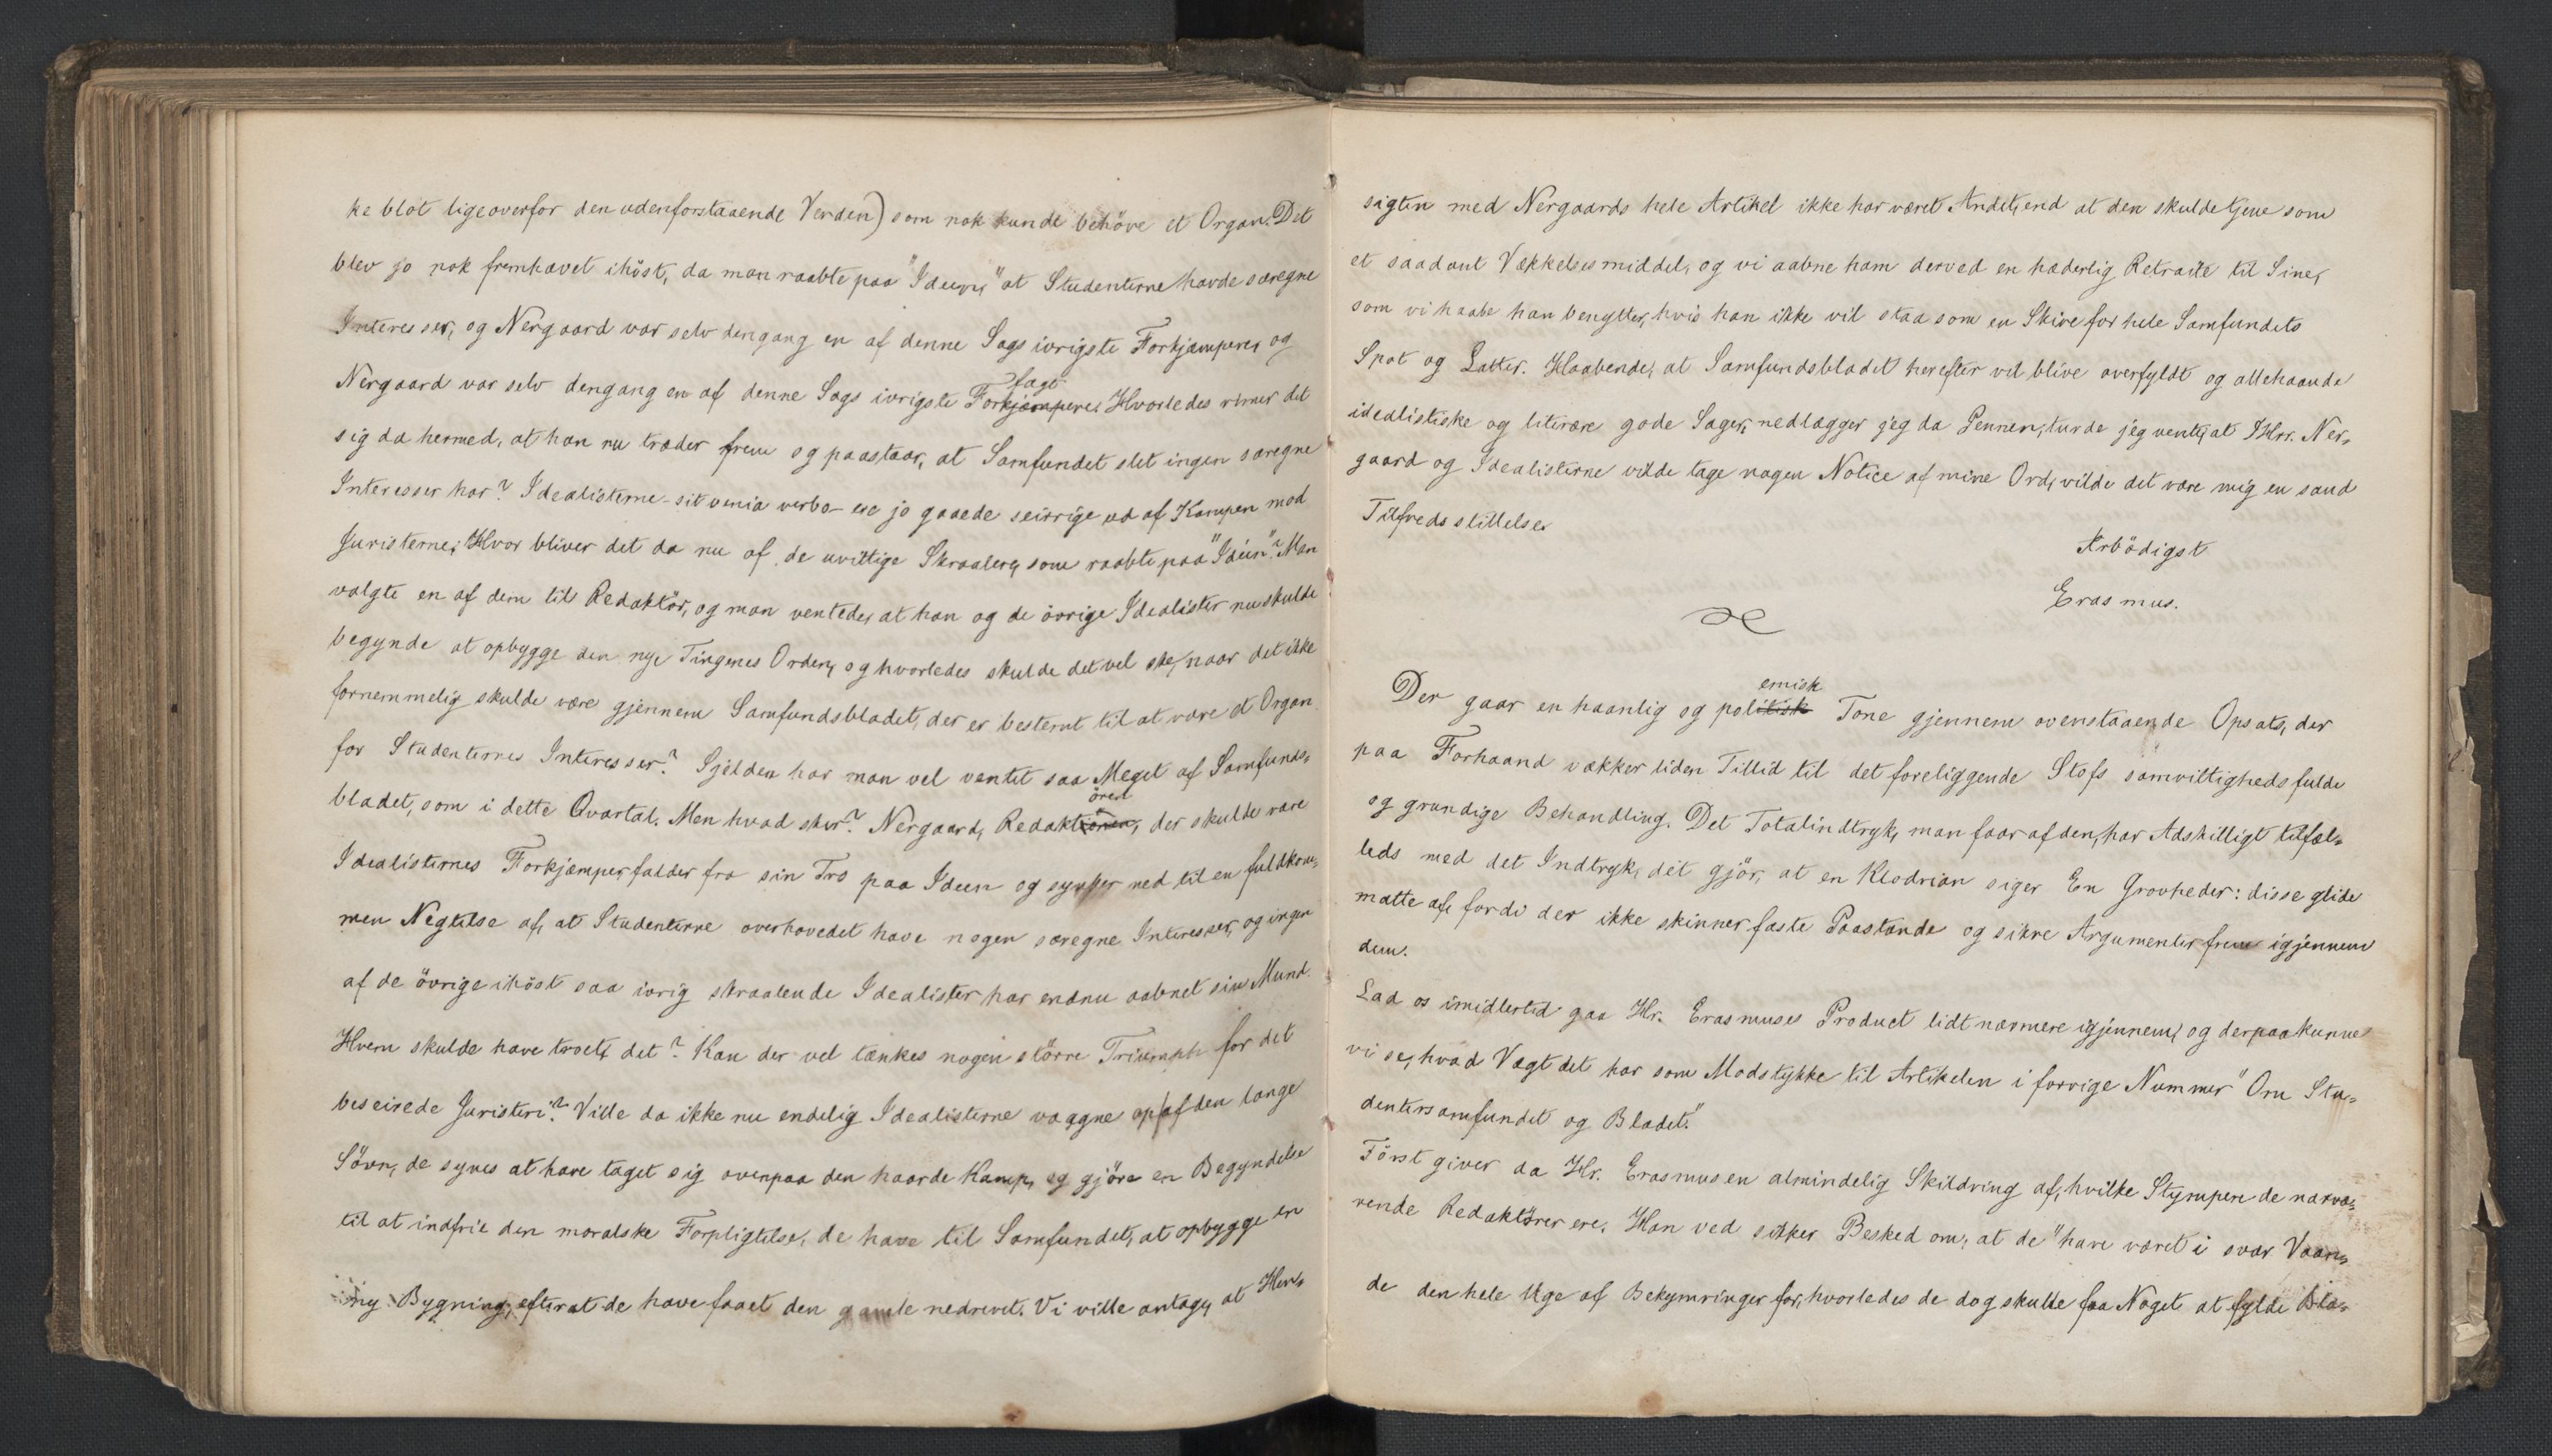 ke blot ligeoverfor den udenforstaaende Verden) som nok kunde behöve et Organ. Det
blev jo nok fremhævet ihöst, da man raabte paa "Ideen," at Studenterne havde særegne
Interesser, og Nergaard var selv dengang en af denne Sags ivrigste Forkjæmpere, og
Nergaard var selv dengang en af denne Sags ivrigste Forkjæmpere. Hvorledes rimer det
sig da hermed, at han nu træder frem og paastaar, at Samfundet slet ingen særegne
Interesser har? Idealisterne - sit venia verbo - ere jo gaaede seirrige ud af Kampen mod
Juristerne; Hvor bliver det da nu af de uvittige Skraalere, som raabte paa "Idéen"? Man
valgte en af dem til Redaktör, og man ventede, at han og de övrige Idealister nu skulde
begynde at opbygge den nye Tingenes Orden, og hvorledes skulde det vel ske, naar det ikke
fornemmelig skulde være gjennem Samfundsbladet, der er bestemt til at være et Organ
for Studenternes Interesser? Sjelden har man vel ventet saa Meget af Samfunds-
ören
bladet, som i dette Qvartal. Men hvad sker? Nergaard, Redaktionen, der skulde være
Idealisternes Forkjæmper, falder fra sin Tro paa Ideen og synker ned til en fuldkom-
men Negtelse af, at Studenterne overhovedet have nogen særegne Interesser, og ingen
af de övrige ihöst saa ivrig skraalende Idealister har endnu aabnet sin Mund.
Hvem skulde have troet det? Kan der vel tænkes nogen större Triumph for det
beseirede Juristeri? Ville da ikke nu endelig Idealisterne vaagne op af den lange
Sövn, de synes at have taget sig ovenpaa den haarde Kamp, og gjöre en Begyndelse
til at indfrie den moralske Forpligtelse, de have til Samfundet, at opbygge en
ny Bygning, efterat de have faaet den gamle nedrevet. Vi ville antage, at Hen-
sigten med Nergaards hele Artikel ikke har været Andet, end at den skulde tjene som
et saadant Vækkelsesmiddel, og vi aabne ham derved en hæderlig Retraite til Sine,
som vi haabe han benytter, hvis han ikke vil staa som en Skive for hele Samfundets
Spot og Latter. Haabende, at Samfundsbladet herefter vil blive overfyldt og allehaande
idealistiske og literære gode Sager, nedlægger jeg da Pennen; turde jeg vente, at Hrr. Ner-
gaard og Idealisterne vilde tage nogen Notice af mine Ord, vilde det være mig en sand
Tilfredsstillelse.
Ærbödigst
Erasmus.
emisk
Der gaar en haanlig og politisk Tone gjennem ovenstaaende Opsats, der
paa Forhaand vækker liden Tillid til det foreliggende Stofs samvittighedsfulde
og grundige Behandling. Det Totalindtryk, man faar af den, har Adskilligt tilfæl-
leds med det Indtryk, det gjör, at en Klodrian siger En Grovheder: disse glide
matte af, fordi der ikke skinner faste Paastande og sikre Argumenter frem igjennem
dem.
Lad os imidlertid gaa Hr. Erasmuses Product lidt nærmere igjennem, og derpaa kunne
vi se, hvad Vægt det har som Modstykke til Artikelen i forrige Nummer "Om Stu-
dentersamfundet og Bladet."
Först giver da Hr. Erasmus en almindelig Skildring af, hvilke Stympere de nærvæ-
rende Redaktörer ere. Han ved sikker Besked om, at de "have været i svær Vaan-
de den hele Uge af Bekymringer for, hvorledes de dog skulde faa Noget at fylde Bla-